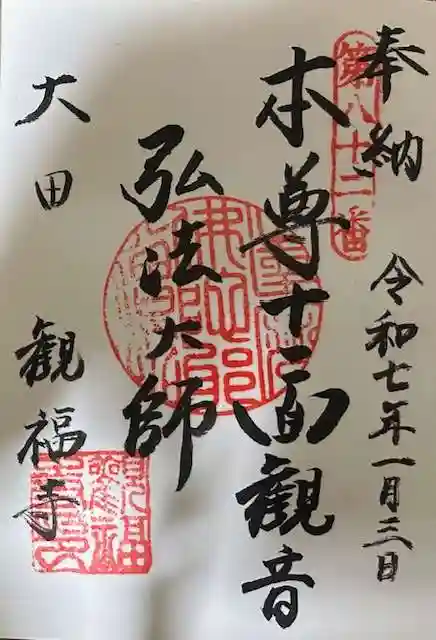 奉納
令和七年一月三日
第八十二番
本尊十一面觀音
弘法大師
大田
觀福寺